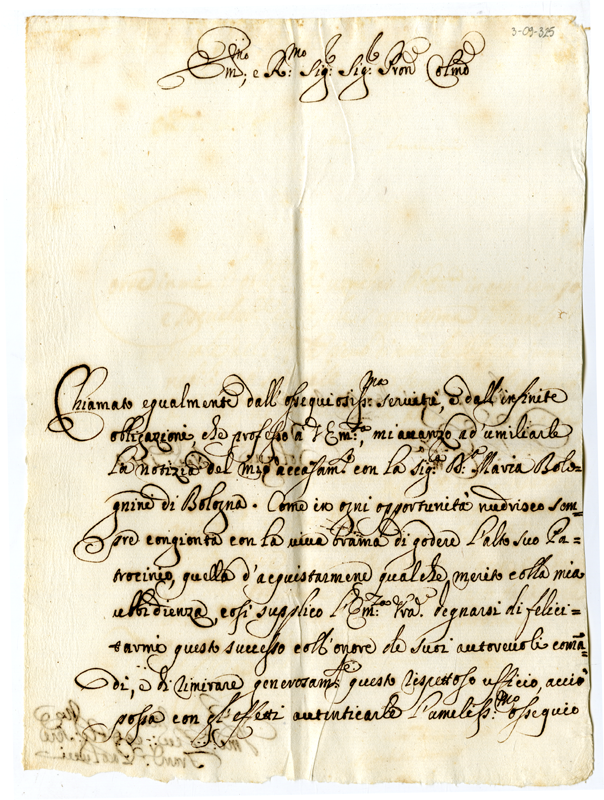 3-09-325
Em:mo e R:mo Sig:r Sig:r Pron Colmo
Chiamato egualmente dall'ossequiosiss:ma servitù, e dall'infinite
obligazioni, che professo a V Em:, mi avanzo ad'umiliarle
la notizia del mio accasam:to con la sig:ra D: Maria Bole-
gnini di Bologna. Come in ogni opportunità nudrisco sem=
pre congionta con la viva brama di godere l'alto suo Pa=
trocinio, quella d'acquistarmene qualche merito colla mia
ubbidienza, così supplico l'Em:za Vra degnarsi di felici=
tarmi questo successo coll'onore de suoi autorevoli comā=
di, e di rimirare generosam:te questo rispettoso ufficio, acciò
possa con gl'effetti autinticarle l'umiliss:mo ossequio